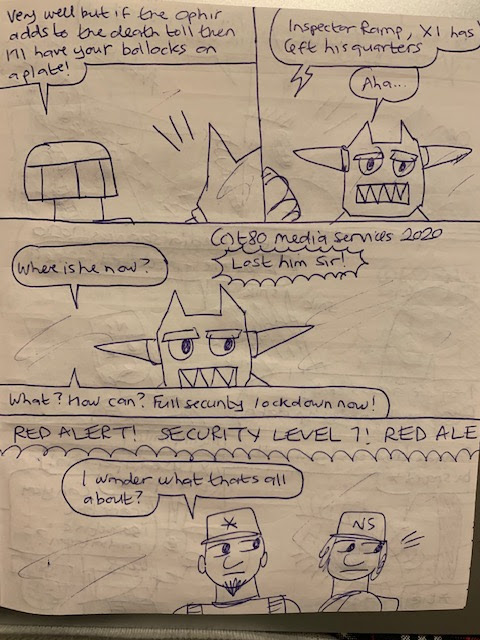 Very well but if the Ophir
adds to the death toll then
I'll have your bollocks on
a plate!
Inspector Ramp, X1 has
left his quarters
Aha...
(c) t80 media services 2020
Where is he now?
Lost him sir!
What? How can? Full security lockdown now!
RED ALERT! SECURITY LEVEL 7! RED ALE
I wonder what thats all
about?
NS